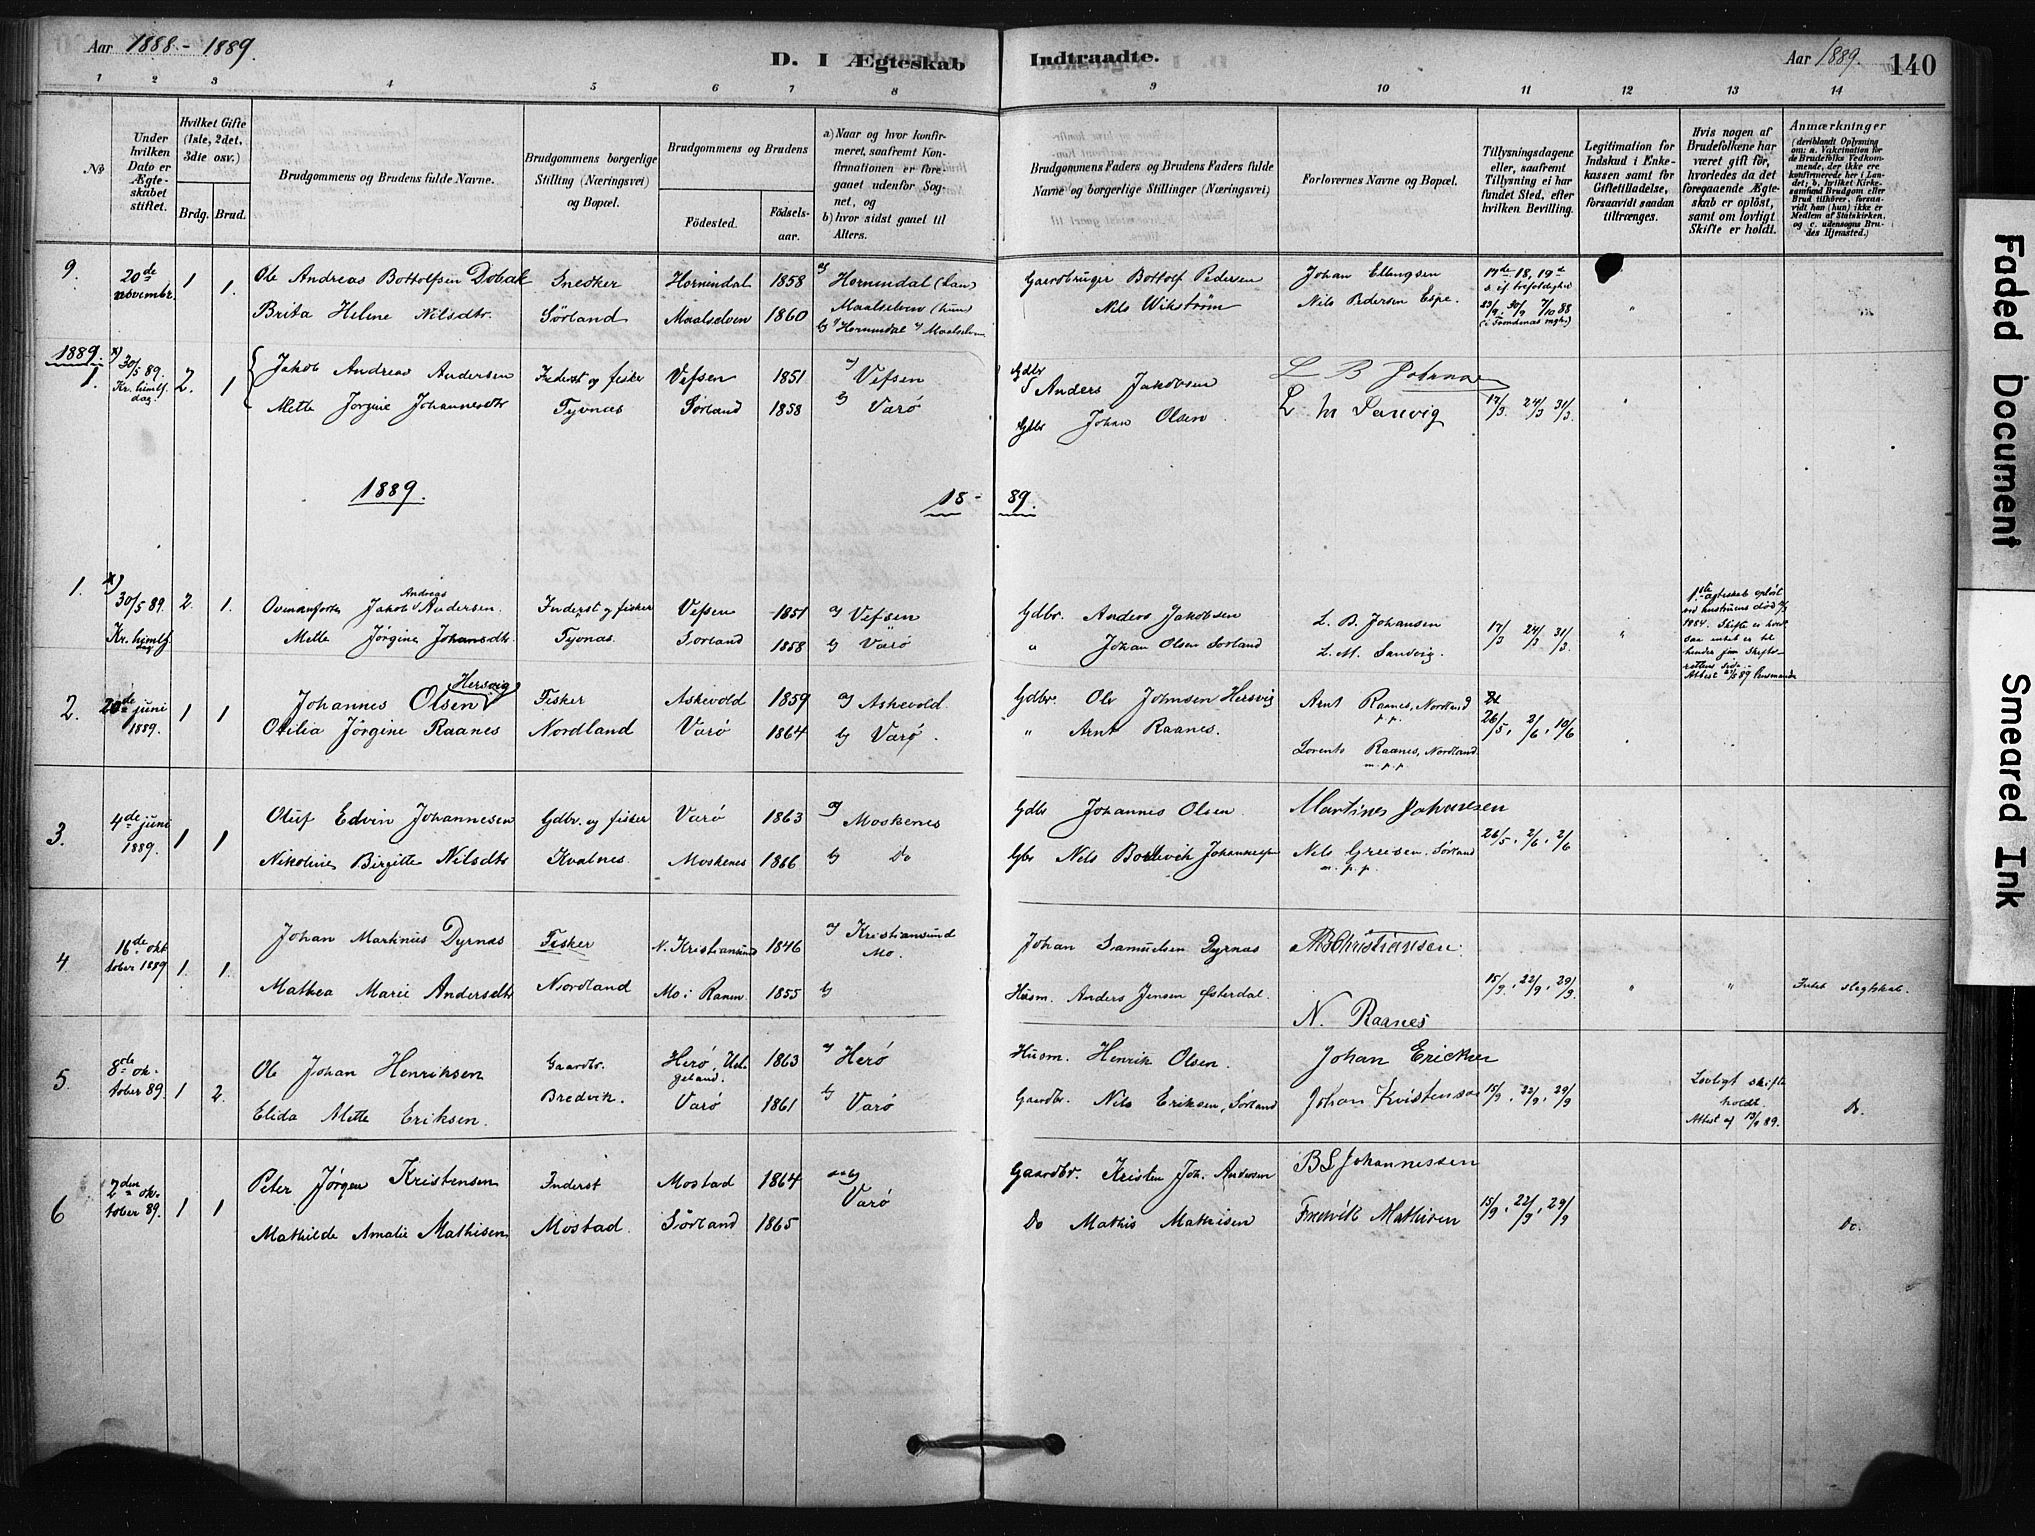 Aar 1888 - 1889.
D. I Ægteskab Indtraadte.
Aar 1889. 140
1 2 3 4 5 6 7 8 9 10 11 12 13 14
No
Under hvilken Dato er Ægteskabet stiftet.
Hvilket Gifte (1ste, 2det, 3die osv.)
Brdg. Brud.
Brudgommens og Brudens fulde Navne.
Brudgommens borgerlige Stilling (Næringsvei) og Bopæl.
Brudgommens og Brudens
Födested. Födselsaar.
a) Naar og hvor konfirmeret, saafremt Konfirmationen er foregaaet udenfor Sognet, og
b) hvor sidst gaaet til Alters.
Brudgommens Faders og Brudens Faders fulde Navne og borgerlige Stillinger (Næringsvei)
Forlovernes Navne og Bopæl.
Tillysningsdagene eller, saafremt Tillysning ei har fundet Sted, efter hvilken Bevilling.
Legitimation for Indskud i Enkekassen samt for Giftetilladelse, forsaavidt saadan tiltrænges.
Hvis nogen af Brudefolkene har været gift før, hvorledes da det foregaaende Ægteskab er oplöst, samt om lovligt Skifte er holdt.
Anmærkninger
(deriblandt Oplysning om: a. Vakcination for de Brudefolks Vedkommende, der ikke ere konfirmerede her i Landet; b. hvilket Kirkesamfund Brudgom eller Brud tilhörer, forsaavidt han (hun) ikke er Medlem af Statskirken. og c. udensogns Brudes Hjemsted.)
9. 20de novembr. 1 1. Ole Andreas Bottolfsen Dobak Snedker Hornindal 1858 a) Hornindal (han)
Brita Helene Nilsdtr. Sørland Maalselven 1860 Maalselven (hun)
b) Hornindal Maalselven
Gaardbruger Bottolf Pedersen Johan Ellingsen 17de 18, 19de
Nils Wikstrøm Nils Pedersen Espe. 23/9 30/9 7/10 88
1889.
1. x) 30/5 89. Kr. himlf. dag. 2. 1 Jakob Andreas Andersen Inderst og fisker Vefsen 1851 a) Vefsen
Mette Jørgine Johannesdtr Tyvnes Sørland 1858 b) Varø
Gdbr Anders Jakobsen L B Johansen
Gdbr Johan Olsen. L M Sanvig 17/3. 24/3 31/3. "
1889. 18 - 89.
1. x) 30/5 89. Kr. himlf. dag 2. 1. Jakob Andreas Andersen. Inderst og fisker Vefsen 1851 a) Vefsen
Mette Jørgine Johansdtr. Tyvnas. Sørland 1858 b) Värö
Gdbr. Anders Jakobsen L. B. Johansen
" Johan Olsen Sørland L. M. Sandvig. 17/3 24/3 31/3. "
1ste ægteskab opløst ved hustruens død
1884. Skifte er
2. 20de juni 1889. 1 1 Johannes Olsen Hersvig Fisker Askevold 1859 a) Askevold
Otilia Jörgine Raanes Nordland Varö 1864 b) Varø.
Gdbr. Ole Johnsen Hersvig Arnt Raanes, Nordland p.p.
" Arnt Raanes. Lorents Raanes, Nordland m.p.p. 26/5. 2/6. 10/6
3. 4de juni 1889. 1 1 Oluf Edvin Johannesen Gdbr. og fisker Varø 1863 a) Moskenes
Nikoline Birgitte Nilsdtr Kvalnes. Moskenes 1866 b) Do
Gdbr Johannes Olsen. Martines Johansen
Gbr Nils Bodevik Johannesen Nils Greesen, Sørland m. p. p. 26/5. 2/6. 2/6 "
4 16de oktober 1889 1. 1. Johan Martinus Dyrnæs Fisker N. Kristiansund 1846 a) Kristiansund
Mathea Marie Andersdtr Nordland Mo i Ranen 1855 Mo. b)
Johan Samuelsen Dyrnas Christiansen.
Husm. Anders Jensen Østerdal. N. Raanes 15/9. 22/9. 29/9. " " Intet slegtskab.
5. 8de oktober 89. 1 2. Ole Johan Henriksen Gaardbr. Herø, Helgeland. 1863 a) Herø
Elida Mette Eriksen. Bredvik. Varø 1861 b) Varø
Husm. Henrik Olsen. Johan Ericksen
Gaardbr. Nils Eriksen, Sørland Johan Kristensen 15/9. 22/9. 29/9 Lovligt skifte holdt. Attest af 13/9 89. Do.
6 2den oktober 89. 1 1 Peter Jørgen Kristensen Inderst Mostad 1864 a og b) Varø
Mathilde Amalie Mathisen Mostad. Sørland 1865
Gaardbr. Kristen Joh. Andersen B S Johannessen
Do Mathis Mathisen Fredrik Mathisen 15/9. 22/9. 29/9 Do.
Faded Document
Smeared Ink